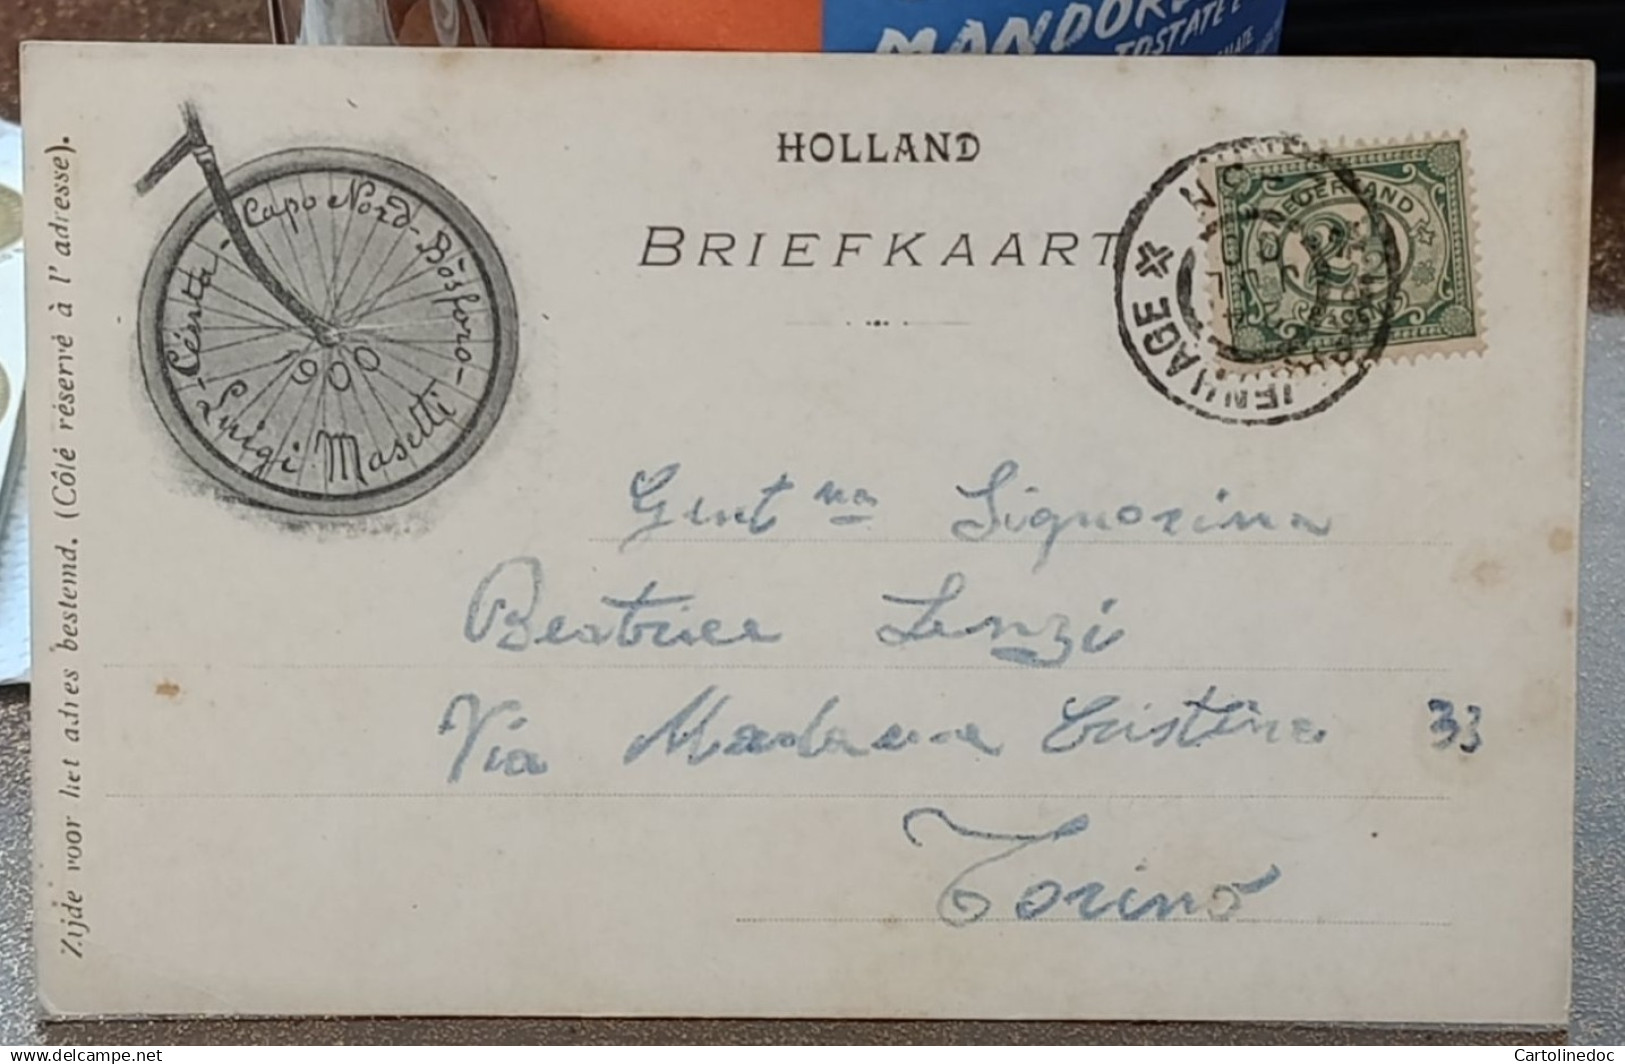 MANDOR
TOSTATE E
Zijde voor het adres bestemd. (Côlé réservé à l'adresse).
- Céuta - Capo Nord - Bosforo -
1900
Luigi Masetti
HOLLAND
BRIEFKAART
NEDERLAND
2½
CENT
Gent ma Signorina
Beatrice Lenzi
Via Madama Cristina 33
Torino
www.delcampe.net
Cartolinedoc